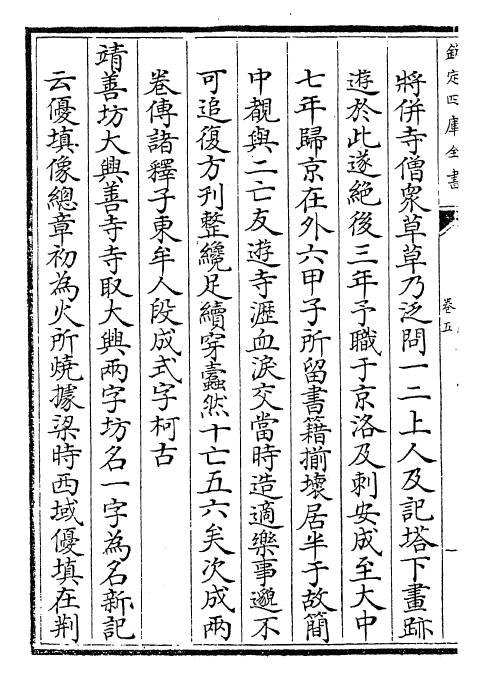 欽定四庫全書
卷五
一
將併寺僧衆草草乃泛問一二上人及記塔下畫跡
遊於此遂絶後三年予職于京洛及刺安成至大中
七年歸京在外六甲子所留書籍揃壞居半于故簡
中覩與二亡友遊寺瀝血淚交當時造適樂事邈不
可追復方刋整纔足續穿蠹然十亡五六矣次成兩
卷傳諸釋子東牟人段成式字柯古
靖善坊大興善寺寺取大興兩字坊名一字為名新記
云優填像總章初為火所燒據梁時西域優填在荆